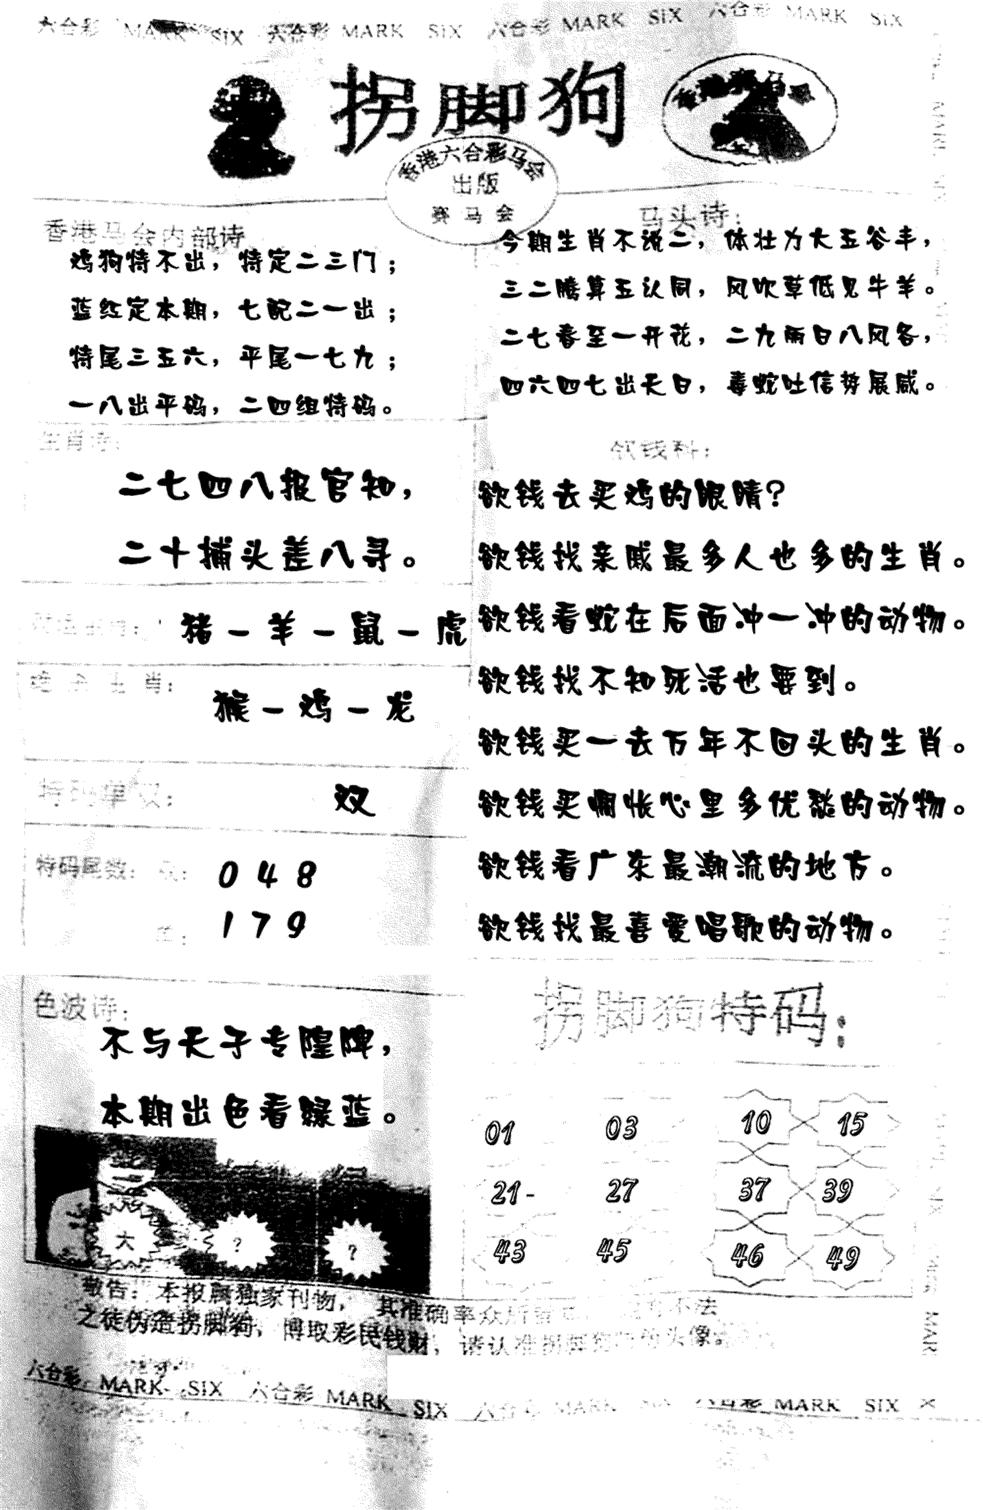 六合彩 MARK SIX 六合彩 MARK SIX 六合彩 MARK SIX 六合彩 MARK SIX
拐脚狗
香港赛马会
香港六合彩马会
出版
赛马会
香港马会内部诗
鸡狗特不出，特定二三门；
蓝红定本期，七配二一出；
特尾三五六，平尾一七九；
一八出平码，二四组特码。
马头诗：
今期生肖不说二，体壮力大五谷丰，
三二腾算五认同，风吹草低见牛羊。
二七春至一开花，二九雨日八风客，
四六四七出天日，毒蛇吐信势展威。
生肖诗：
二七四八报官知，
二十捕头差八寻。
猪－羊－鼠－虎
绝杀生肖：
猴－鸡－龙
特码单双：
双
特码尾数：双：
048
单：
179
欲钱料：
欲钱去买鸡的眼睛？
欲钱找亲戚最多人也多的生肖。
欲钱看蛇在后面冲一冲的动物。
欲钱找不知死活也要到。
欲钱买一去万年不回头的生肖。
欲钱买惆怅心里多优愁的动物。
欲钱看广东最潮流的地方。
欲钱找最喜爱唱歌的动物。
色波诗：
不与天子专隍牌，
本期出色看绿蓝。
大 ？ ？
拐脚狗特码：
01 03 10 15
21- 27 37 39
43 45 46 49
敬告：本报属独家刊物，其准确率众所
不法
之徒伪造拐脚狗，博取彩民钱财，请认准拐脚
头像
六合彩 MARK SIX 六合彩 MARK SIX 六合彩 MARK SIX 六合彩 MARK SIX